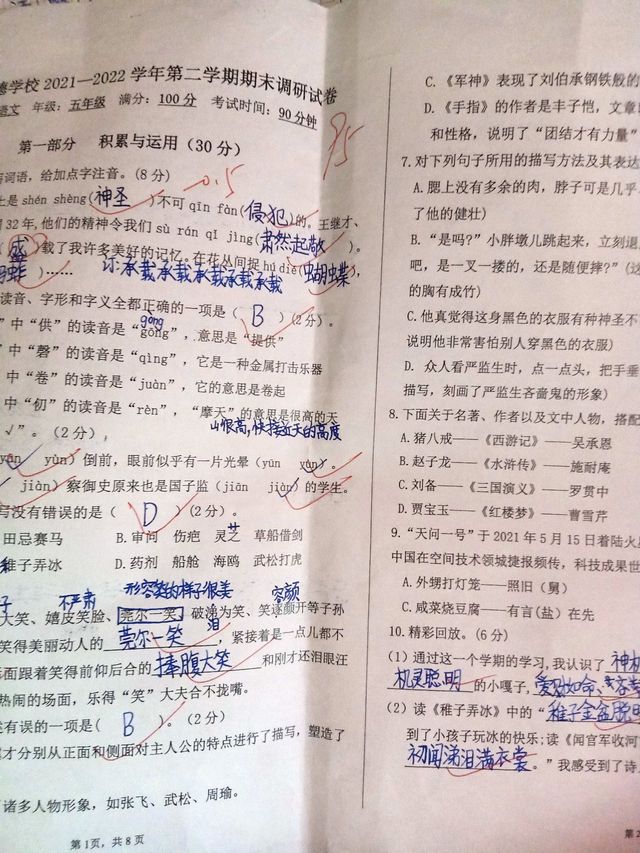 德学校2021—2022学年第二学期期末调研试卷
语文 年级：五年级 满分：100分 考试时间：90分钟
95
第一部分 积累与运用（30分）
词语，给加点字注音。（8分）
-0.5
是 shén shèng(神圣)不可 qīn fàn(侵犯)的。王继才、
32年,他们的精神令我们 sù rán qǐ jìng(肃然起敬)。
(盛)载了我许多美好的记忆。在花丛间捉 hú dié(蝴蝶),
蝴蝶)…… 订:承载承载承载承载承载
读音、字形和字义全都正确的一项是(B)(2分)。
gōng
”中“供”的读音是“gōng”，意思是“提供”
”中“磬”的读音是“qìng”，它是一种金属打击乐器
中“卷”的读音是“juàn”，它的意思是卷起
中“仞”的读音是“rèn”，“摩天”的意思是很高的天
√”。（2分）,
山很高,快接近天的高度
yūn yùn）倒前，眼前似乎有一片光晕（yūn yùn）。
jiàn）察御史原来也是国子监（jiān jiàn）的学生。
写没有错误的是（D）(2分)。
田忌赛马 B.审问 伤疤 灵芝 草船借剑
稚子弄冰 D.药剂 船舱 海鸥 武松打虎
子 不严肃 形容笑的样子很美 容颜
大笑、嬉皮笑脸、莞尔一笑、破涕为笑、笑逐颜开等子孙
泪
笑得美丽动人的莞尔一笑，紧接着是一点儿都不
后面跟着笑得前仰后合的捧腹大笑和刚才还泪眼汪
热闹的场面，乐得“笑”大夫合不拢嘴。
有误的一项是(B)。（2分）
才分别从正面和侧面对主人公的特点进行了描写，塑造了
诸多人物形象，如张飞、武松、周瑜。
第1页，共8页
C.《军神》表现了刘伯承钢铁般的
D.《手指》的作者是丰子恺，文章
和性格，说明了“团结才有力量”
7.对下列句子所用的描写方法及其表达
A.腮上没有多余的肉，脖子可是几乎
了他的健壮)
B.“是吗？”小胖墩儿跳起来，立刻退
吧，是一叉一搂的，还是随便摔？”(这
的胸有成竹)
C.他真觉得这身黑色的衣服有种神圣不
说明他非常害怕别人穿黑色的衣服)
D. 众人看严监生时，点一点头，把手垂
描写，刻画了严监生吝啬鬼的形象)
8.下面关于名著、作者以及文中人物，搭配
A.猪八戒——《西游记》——吴承恩
B.赵子龙——《水浒传》——施耐庵
C.刘备——《三国演义》——罗贯中
D.贾宝玉——《红楼梦》——曹雪芹
9.“天问一号”于2021年5月15日着陆火
中国在空间技术领城捷报频传，科技成果世
A.外甥打灯笼——照旧（舅）
C.咸菜烧豆腐——有言(盐)在先
10.精彩回放。(6分)
（1）通过这一个学期的学习,我认识了神机
机灵聪明的小嘎子,爱财如命、
（2）读《稚子弄冰》中的“稚子金盆脱晓
到了小孩子玩冰的快乐;读《闻官军收河
初闻涕泪满衣裳。”我感受到了诗
第2